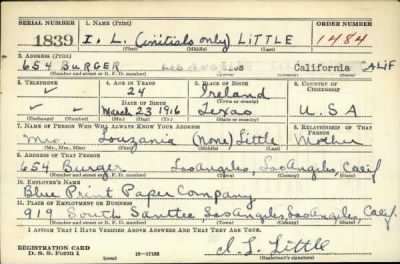 SERIAL NUMBER 1. NAME (Print) ORDER NUMBER
1839 I. L. (initials only) LITTLE 1484
(First) (Middle) (Last)
2. ADDRESS (Print)
654 BURGER LOS ANGELES California CALIF
(Number and street or R. F. D. number) (Town) (County) (State)
3. TELEPHONE 4. AGE IN YEARS 5. PLACE OF BIRTH 6. COUNTRY OF CITIZENSHIP
24 Ireland
DATE OF BIRTH (Town or county)
March 23 1916 Texas U.S.A
(Exchange) (Number) (Mo.) (Day) (Yr.) (State or country)
7. NAME OF PERSON WHO WILL ALWAYS KNOW YOUR ADDRESS 8. RELATIONSHIP OF THAT PERSON
Mrs Louzania (None) Little Mother
(Mr., Mrs., Miss) (First) (Middle) (Last)
9. ADDRESS OF THAT PERSON
654 Burger Los Angeles, Los Angeles, Calif
(Number and street or R. F. D. number) (Town) (County) (State)
10. EMPLOYER'S NAME
Blue Print Paper Company
11. PLACE OF EMPLOYMENT OR BUSINESS
919 South Santtee Los Angeles, Los Angeles, Calif.
(Number and street or R. F. D. number) (Town) (County) (State)
I AFFIRM THAT I HAVE VERIFIED ABOVE ANSWERS AND THAT THEY ARE TRUE.
REGISTRATION CARD
D. S. S. Form 1 16—17105 I. L. Little
(Registrant's signature)